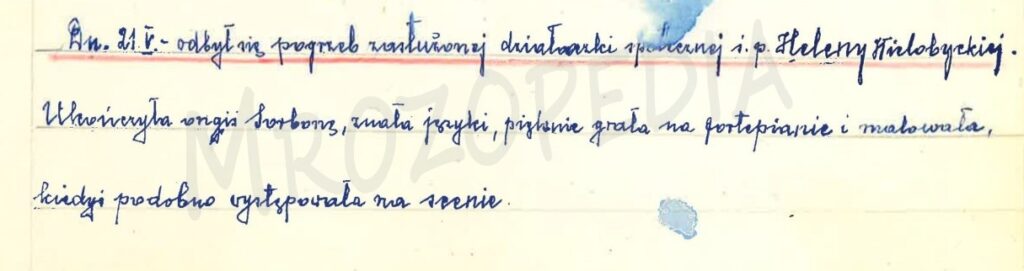 Dn. 21 V. - odbył się pogrzeb zasłużonej działaczki społecznej ś. p. Heleny Wielobyckiej.
Ukończyła ongiś Sorbonę, znała języki, pięknie grała na fortepianie i malowała,
kiedyś podobno występowała na scenie.
MROZOPEDIA